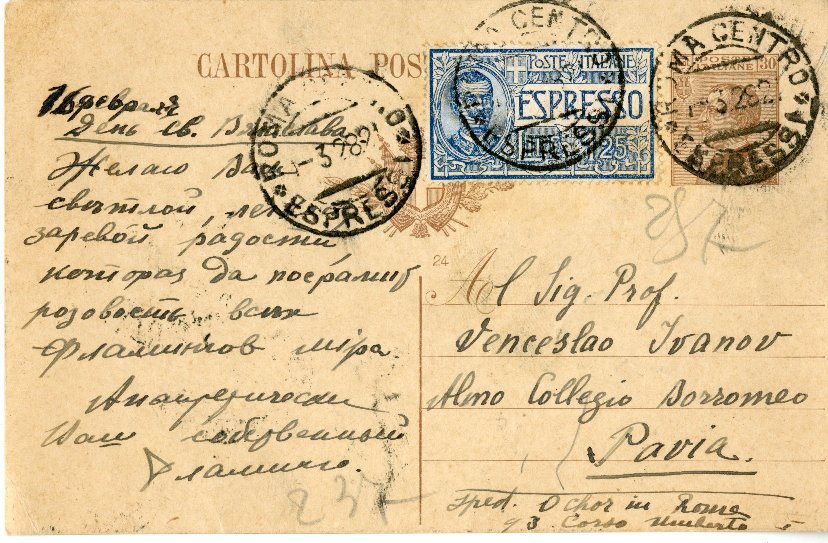 CARTOLINA POS
POSTE ITALIANE
ESPRESSO
1.25
30
ROMA CENTRO
1-3.28
ESPRESSI
ROMA CENTRO
ESPRESSI
ROMA CENTRO
1-3.28
ESPRESSI
16 февраля
День св. Вячеслава
Желаю Ва
свѣтлой, ле
заревой радости,
которая да посрамит
розовость всѣх
Фламингов мiра
Анакретически
Ваш собственный
Фламинго.
237
24
257
Al Sig. Prof.
Venceslao Ivanov
Almo Collegio Borromeo
Pavia.
Sped. O Chor in Roma
93 Corso Umberto